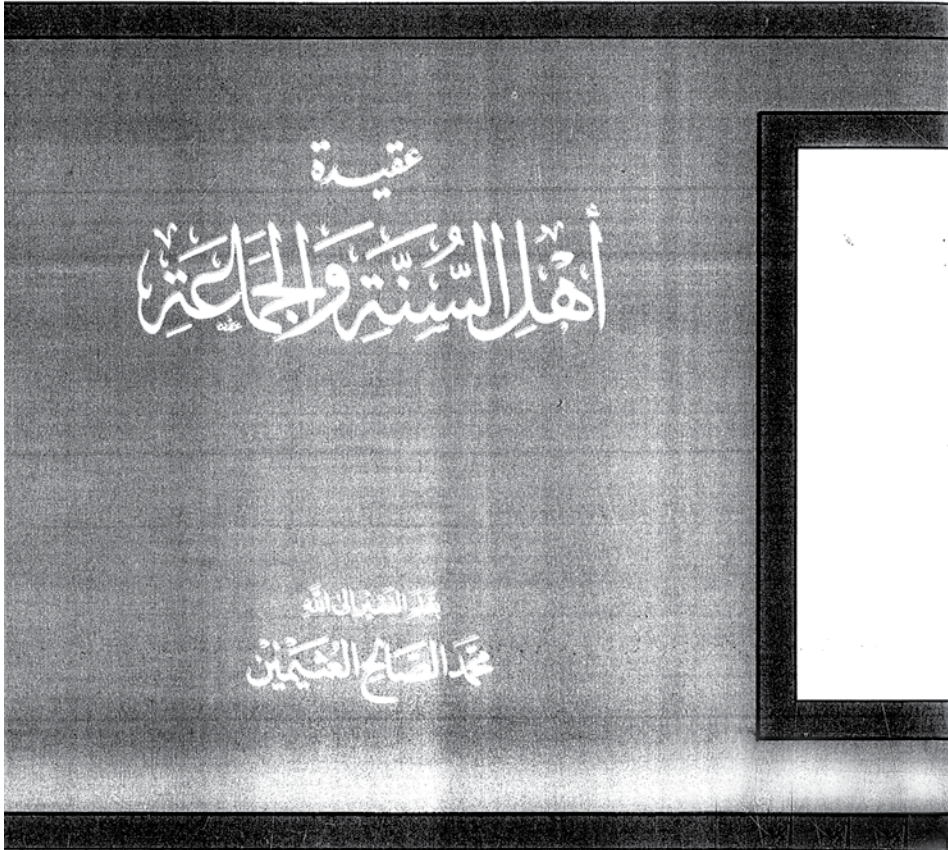 عقيدة
أَهْلِ السُّنَّةِ وَالجَمَاعَةِ
بقلم الفقير إلى الله
محمد الصالح العثيمين